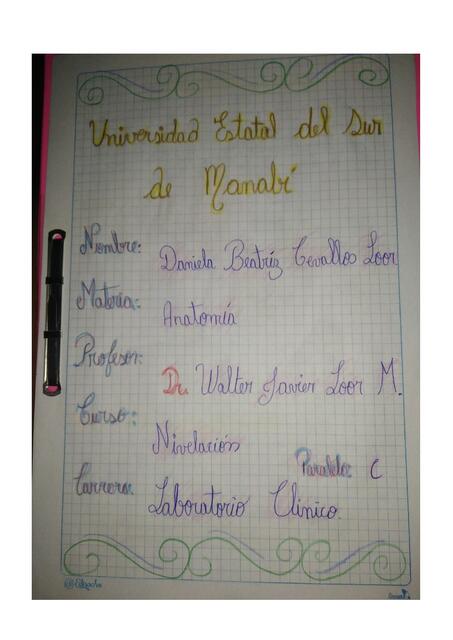 Universidad Estatal del Sur
de Manabí
Nombre: Daniela Beatriz Cevallos Loor
Materia: Anatomía
Profesor: Dr. Walter Javier Loor M.
Curso: Nivelación
Paralelo: C
Carrera: Laboratorio Clinico.